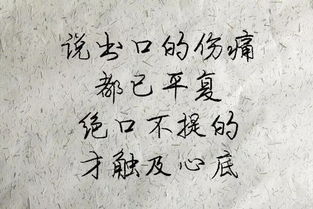 说出口的伤痛
都已平复
绝口不提的
才触及心底